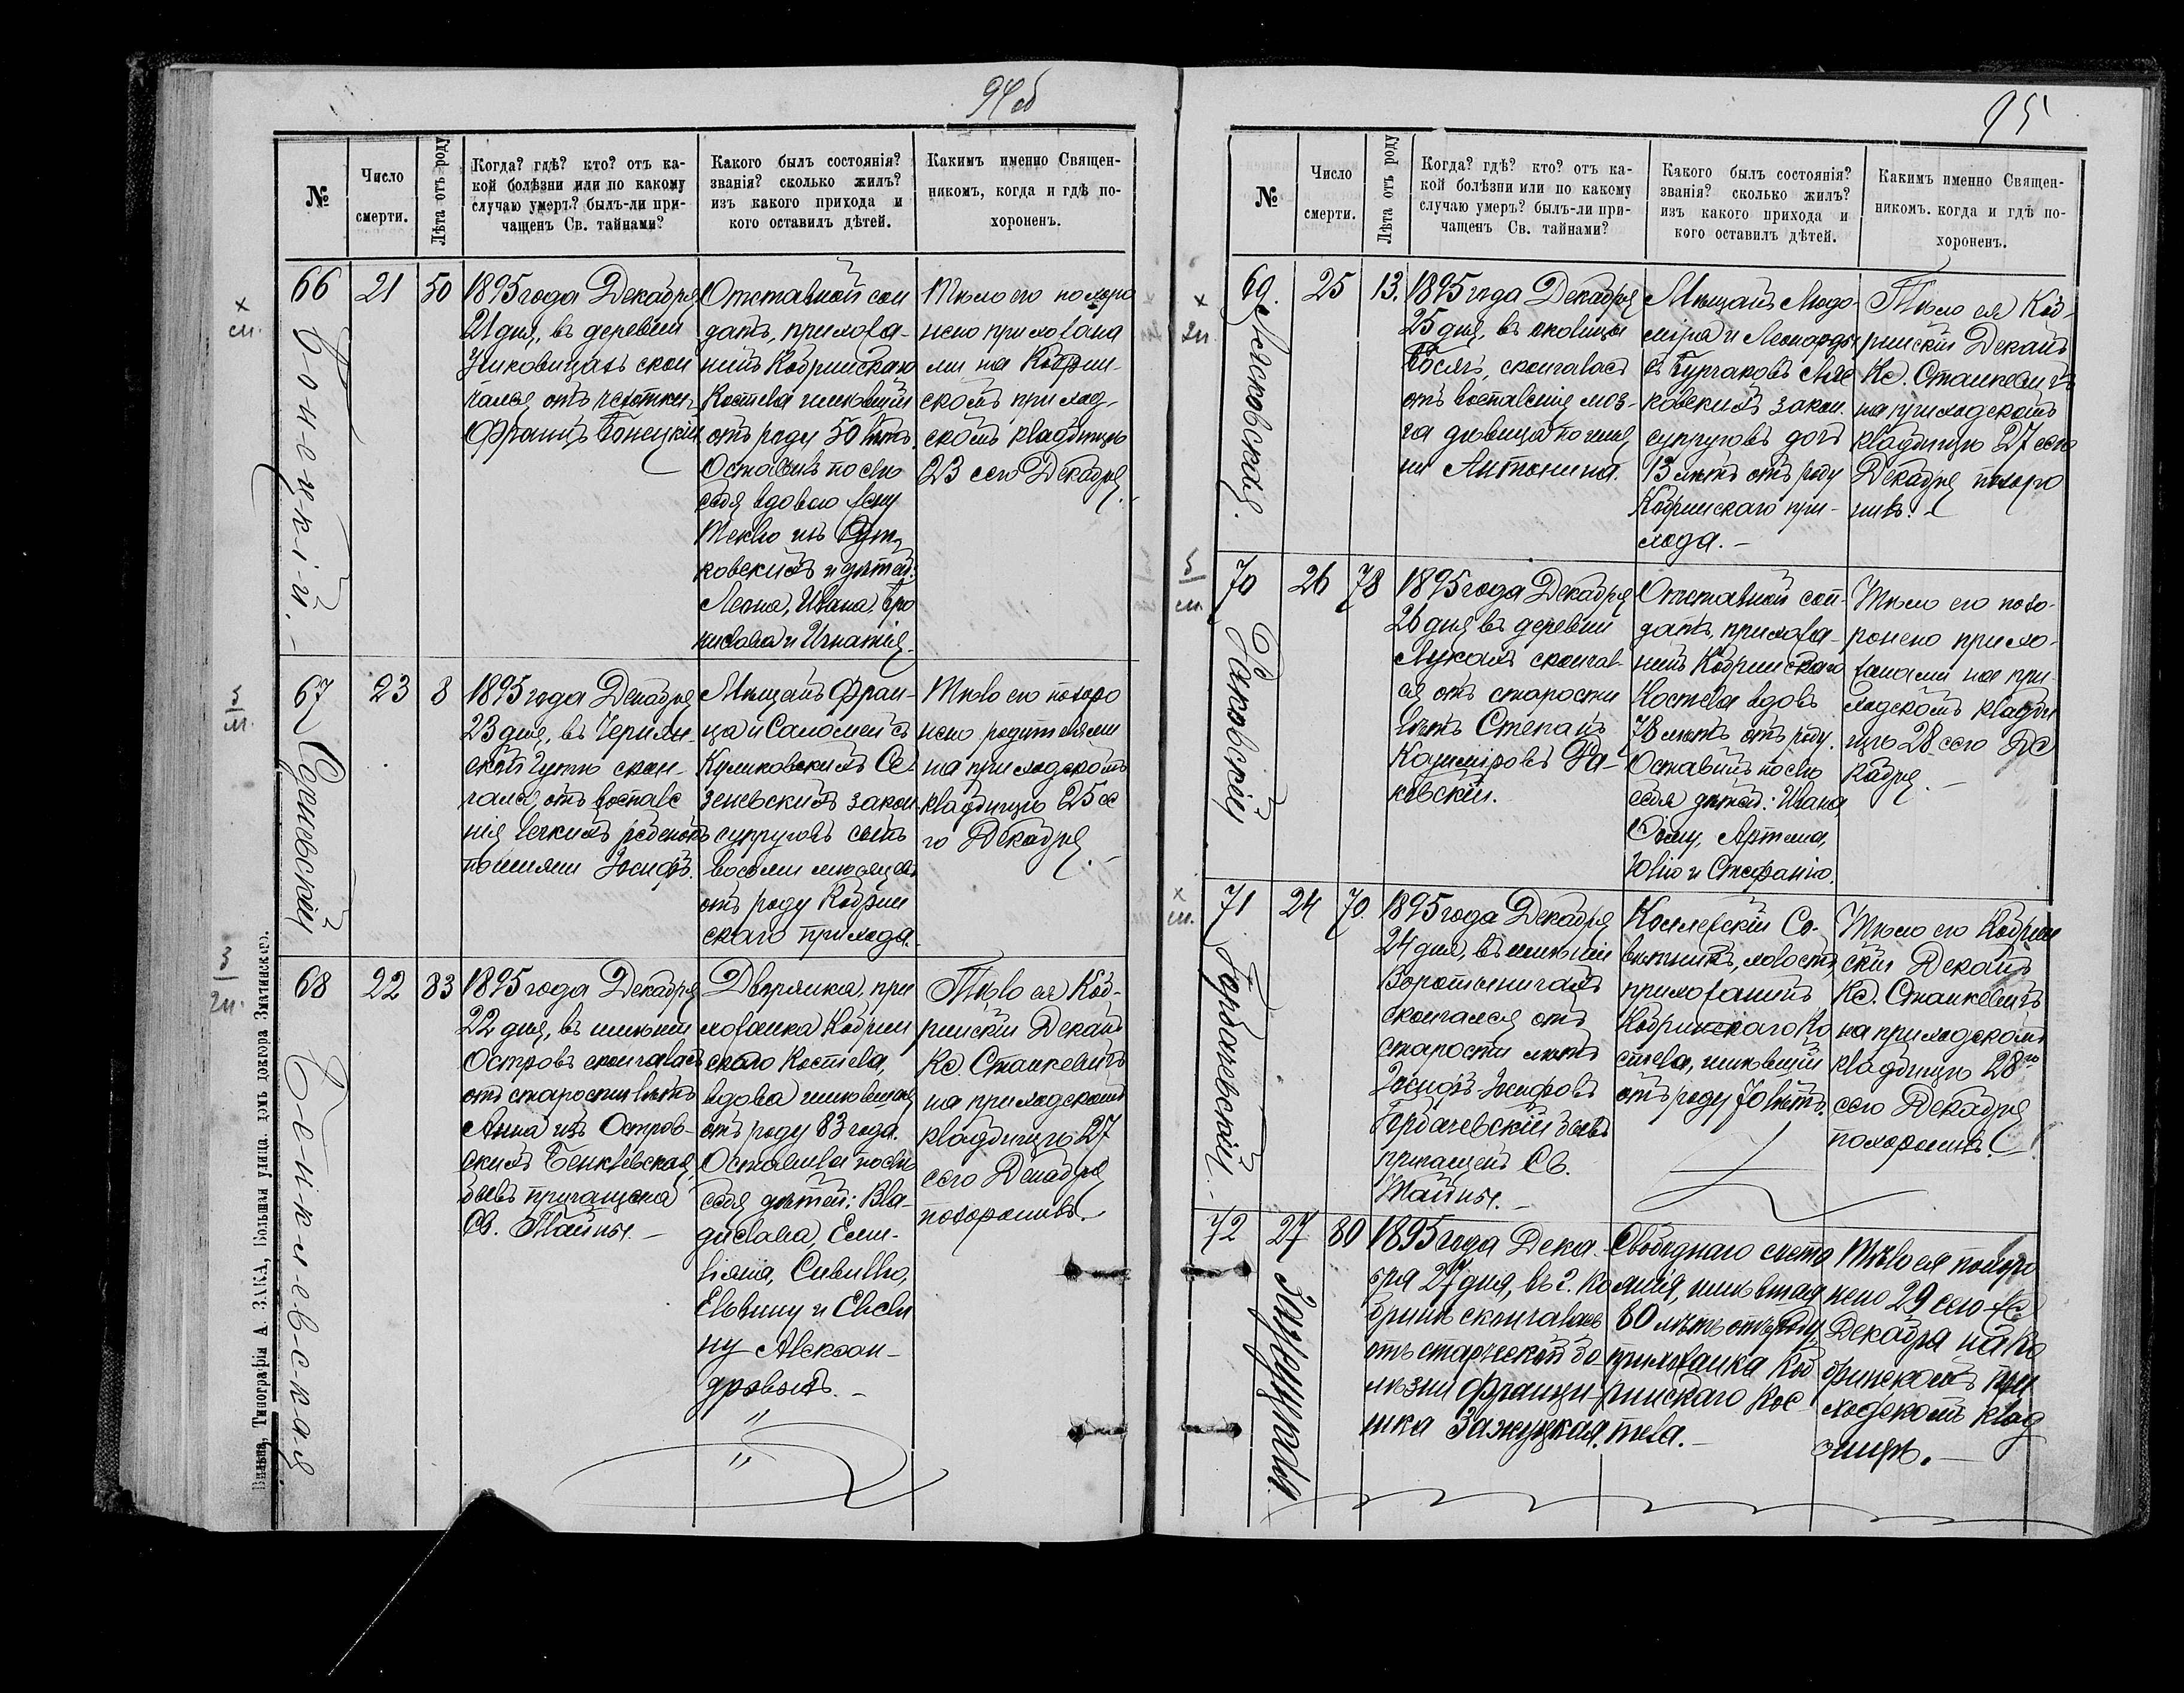 94об
№
Число
смерти.
Лѣта отъ роду
Когда? гдѣ? кто? отъ ка-
кой болѣзни или по какому
случаю умеръ? былъ-ли при-
чащенъ Св. тайнами?
Какого былъ состоянія?
званія? сколько жилъ?
изъ какого прихода и
кого оставилъ дѣтей.
Какимъ именно Священ-
никомъ, когда и гдѣ по-
хороненъ.
66
Бонецкій.
21
50
1895 года Декабря
21 дня, въ деревни
скон
чался отъ чахотки
Францъ Бонецкій
Отставной сол
датъ, прихожа-
нинъ Кобринскаго
Костела имѣвшій
отъ роду 50 лѣтъ.
Оставивъ по сво
себя вдовою жену
Теклю изъ
ковскихъ и дѣтей:
Леона, Ивана, Бро
нислава и Игнатія.
Тѣло его похоро
нено прихожана
ми на Кобрин-
скомъ приход-
скомъ кладбищѣ
23 сего Декабря.
67
23
8
1895 года Декабря
23 дня, въ Черня-
скон-
чался отъ воспале
нія легкихъ ребенокъ
по имени Іосифъ.
Мѣщанъ Фран-
ца и Саломеи съ
Куликовскихъ Се-
зеневскихъ закон
супруговъ сынъ
восьми мѣсяцевъ
отъ роду Кобрин
скаго прихода.
Тѣло его похоро
нено родителями
на приходскомъ
кладбищѣ 25 се
го Декабря.
68
Бенклевская
22
83
1895 года Декабря
22 дня, въ имѣніи
Островъ скончалась
отъ старости лѣтъ
Анна изъ Остров-
скихъ Бенклевская,
бывъ причащена
Св. Тайнъ.
Дворянка, при
хожанка Кобрин
скаго Костела,
вдова имѣвшая
отъ роду 83 года.
Оставила по сво
себя дѣтей: Вла-
дислава, Еми-
ліяна, Сивиллю,
Ельвину и
ну Александ-
дровыхъ.
Тѣло ея Коб-
ринскій Деканъ
Кс. Станкевичъ
на приходскомъ
кладбищѣ 27
сего Декабря
похоронивъ.
Вильна, Типографія А. ЗАКА, Большая улица, домъ доктора Змачинскаго.
95
№
Число
смерти.
Лѣта отъ роду
Когда? гдѣ? кто? отъ ка-
кой болѣзни или по какому
случаю умеръ? былъ-ли при-
чащенъ Св. тайнами?
Какого былъ состоянія?
званія? сколько жилъ?
изъ какого прихода и
кого оставилъ дѣтей.
Какимъ именно Священ-
никомъ. когда и гдѣ по-
хороненъ.
69.
Лясковская.
25
13.
1895 года Декабря
25 дня, въ околицы
скончалась
отъ воспаленія моз-
га дѣвица по име
ни Антонина.
Мѣщанъ Людо-
міра и Леонарды
съ Бурчаковъ Ляс
ковскихъ закон.
супруговъ дочь
13 лѣтъ отъ роду
Кобринскаго при-
хода.
Тѣло ея Коб-
ринскій Деканъ
Кс. Станкевичъ
на приходскомъ
кладбищѣ 27 сего
Декабря похоро
нивъ.
70
26
78
1895 года Декабря
26 дня въ деревни
Лукахъ скончал-
ся отъ старости
лѣтъ Степанъ
Казиміровъ
ковскій.
Отставной сол-
датъ, прихожа-
нинъ Кобринскаго
Костела вдовъ
78 лѣтъ отъ роду.
Оставилъ по сво
себя дѣтей: Ивана,
Фому, Артема,
Юлію и Стефанію.
Тѣло его похо-
ронено прихо-
жанами на при-
ходскомъ кладби
щѣ 28 сего Де
кабря.
71
Горбачевскій.
24
70
1895 года Декабря
24 дня, въ имѣніи
Воротыничахъ
скончался отъ
старости лѣтъ
Іосифъ Іосифовъ
Горбачевскій бывъ
причащенъ Св.
Тайнъ.
Коллежскій Со-
вѣтникъ, холостъ
прихожанинъ
Кобринскаго Ко
стела, имѣвшій
отъ роду 70 лѣтъ.
Тѣло его Кобрин
скій Деканъ
Кс. Станкевичъ
на приходскомъ
кладбищѣ 28го
сего Декабря
похоронивъ.
72
27
80
1895 года Дека-
бря 27 дня, въ г. Ко
бринѣ скончалась
отъ старческой бо
лѣзни Францы-
шка Зажецкая.
Свободнаго состо
янія, имѣвшая
80 лѣтъ отъ роду,
прихожанка Коб
ринскаго Кос-
тела.
Тѣло ея похоро
нено 29 сего
Декабря на Ко
бринскомъ при
ходскомъ клад
бищѣ.